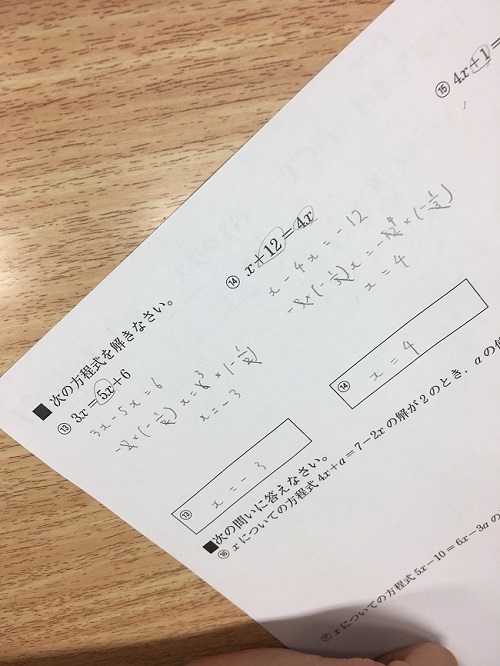 ■ 次の方程式を解きなさい。
⑬ 3x=5x+6
3x-5x=6
x=-3
⑬ x=-3
⑭ x+12=4x
x-4x=-12
x=4
⑭ x=4
⑮ 4x+1=
■ 次の問いに答えなさい。
⑯ xについての方程式4x+a=7-2xの解が2のとき，aの
xについての方程式5x-10=6x-3aの